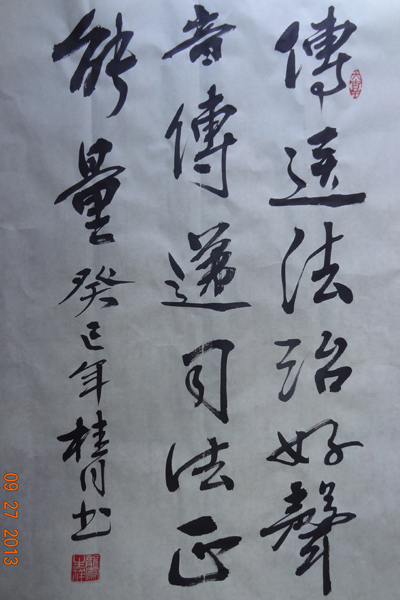 傳送法治好聲
音傳遞司法正
能量 癸巳年 桂月 书
09 27 2013